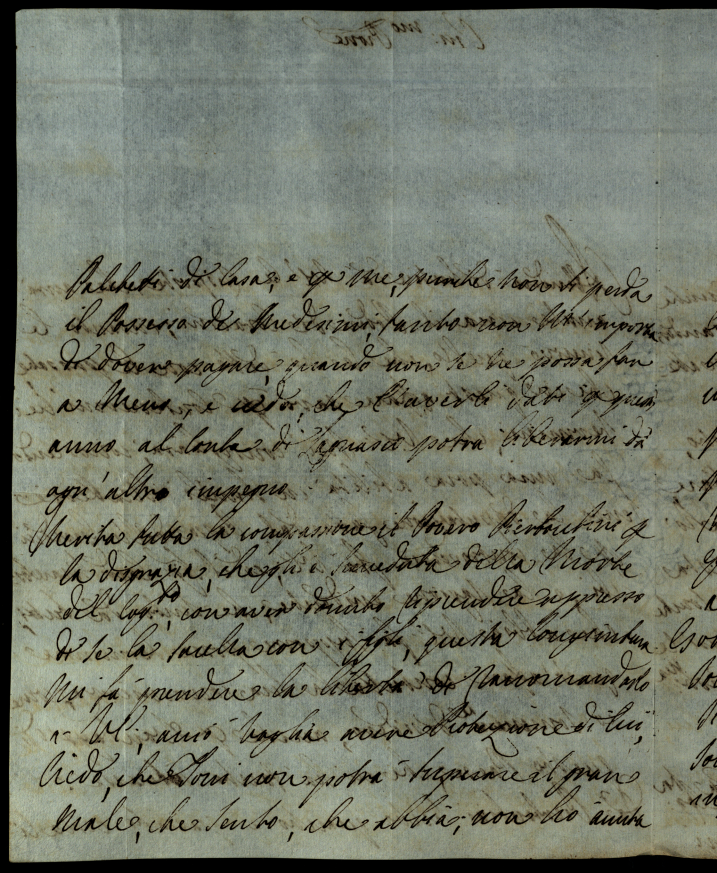 Palchetti di Casa, e per me, purche non si perda
il Possesso de Medesimi, tanto non importa
di dovere pagare, quando non se ne possa fare
a meno, e credo, che l'averli dati per quest
anno al Conte di Lagnasco potra liberarmi da
ogn' altro impegno
Merita tutta la compassione il Povero per
la disgrazia, che gli è succeduta della Morte
del Cog.to, con aver dovuto riprendere appresso
di se la sorella con i figli, questa congiuntura
mi fà prendere la libertà di raccomandarlo
a VS, acciò voglia avere Protezione di lui,
Credo, che non potrà il gran
male, che sento, che abbia, non ho avuta